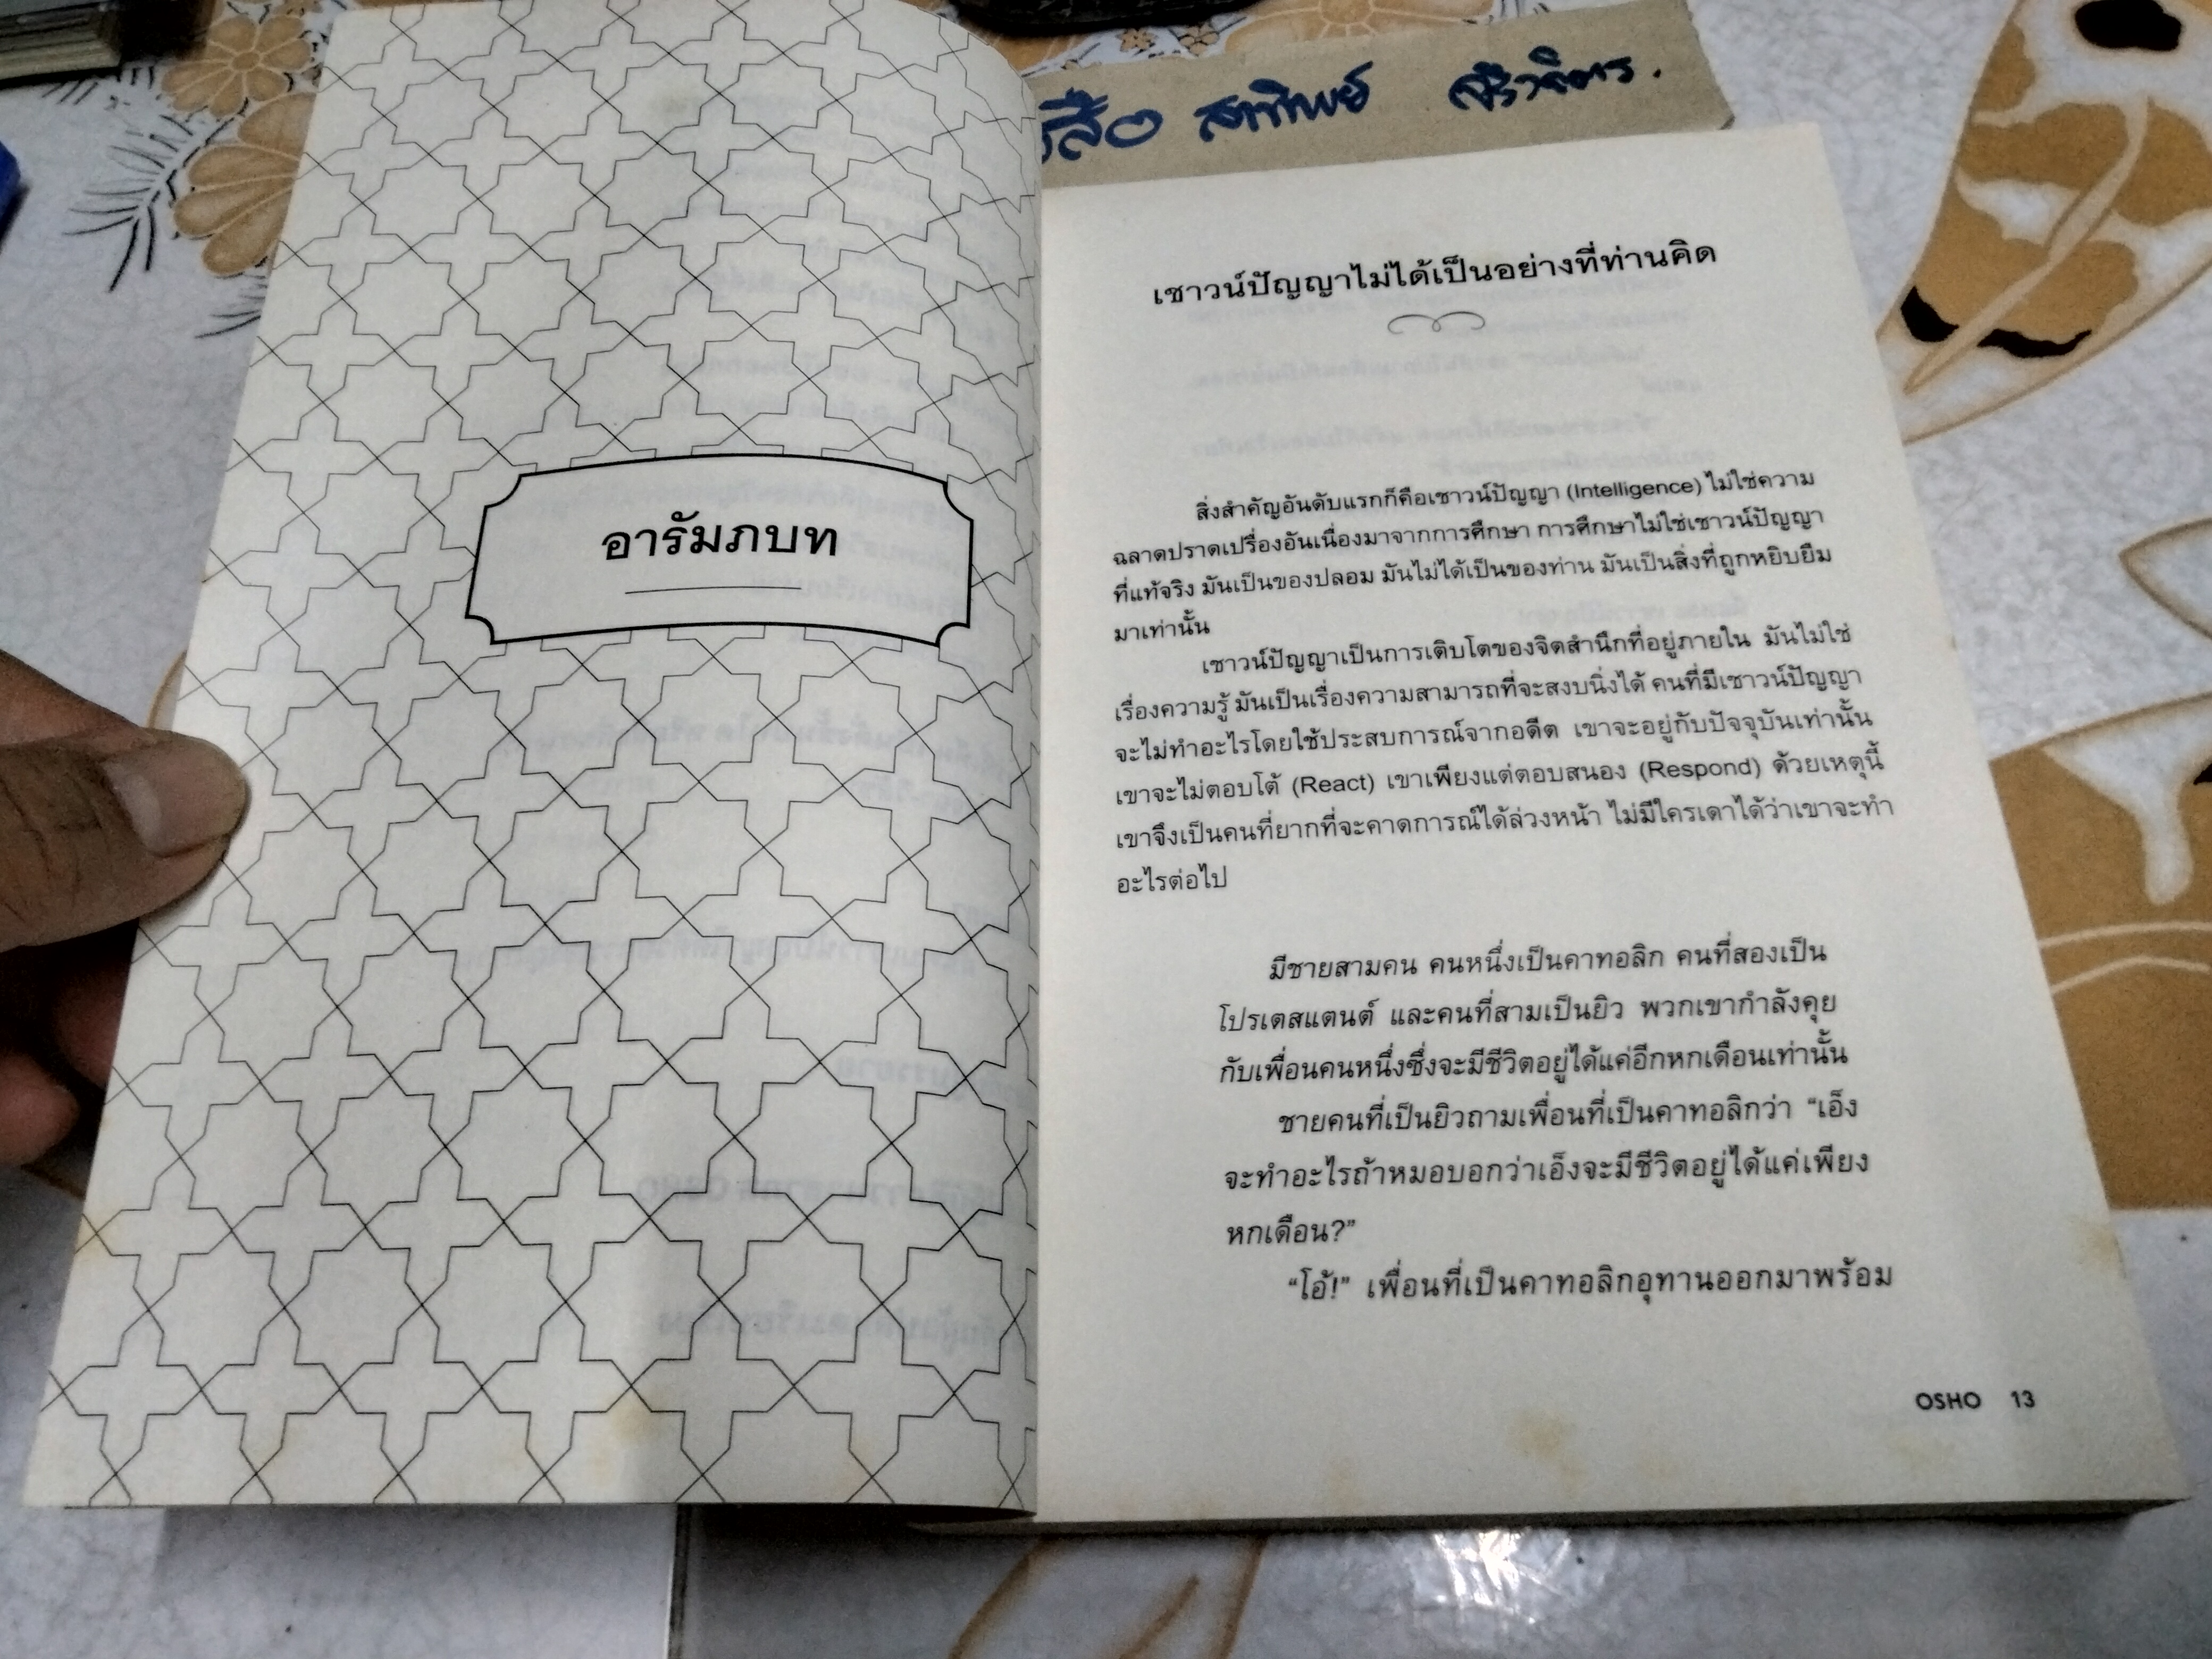 สาทิพย์
อารัมภบท
เชาวน์ปัญญาไม่ได้เป็นอย่างที่ท่านคิด
สิ่งสำคัญอันดับแรกก็คือเชาวน์ปัญญา (Intelligence) ไม่ใช่ความ
ฉลาดปราดเปรื่องอันเนื่องมาจากการศึกษา การศึกษาไม่ใช่เชาวน์ปัญญา
ที่แท้จริง มันเป็นของปลอม มันไม่ได้เป็นของท่าน มันเป็นสิ่งที่ถูกหยิบยืม
มาเท่านั้น
เชาวน์ปัญญาเป็นการเติบโตของจิตสำนึกที่อยู่ภายใน มันไม่ใช่
เรื่องความรู้ มันเป็นเรื่องความสามารถที่จะสงบนิ่งได้ คนที่มีเชาวน์ปัญญา
จะไม่ทำอะไรโดยใช้ประสบการณ์จากอดีต เขาจะอยู่กับปัจจุบันเท่านั้น
เขาจะไม่ตอบโต้ (React) เขาเพียงแต่ตอบสนอง (Respond) ด้วยเหตุนี้
เขาจึงเป็นคนที่ยากที่จะคาดการณ์ได้ล่วงหน้า ไม่มีใครเดาได้ว่าเขาจะทำ
อะไรต่อไป
มีชายสามคน คนหนึ่งเป็นคาทอลิก คนที่สองเป็น
โปรเตสแตนต์ และคนที่สามเป็นยิว พวกเขากำลังคุย
กับเพื่อนคนหนึ่งซึ่งจะมีชีวิตอยู่ได้แค่อีกหกเดือนเท่านั้น
ชายคนที่เป็นยิวถามเพื่อนที่เป็นคาทอลิกว่า “เอ็ง
จะทำอะไรถ้าหมอบอกว่าเอ็งจะมีชีวิตอยู่ได้แค่เพียง
หกเดือน?”
“โอ้!” เพื่อนที่เป็นคาทอลิกอุทานออกมาพร้อม
OSHO 13